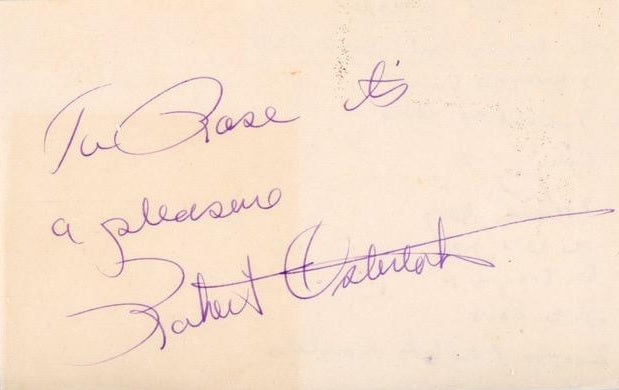 To Rose it's
a pleasure
Robert Osterloh